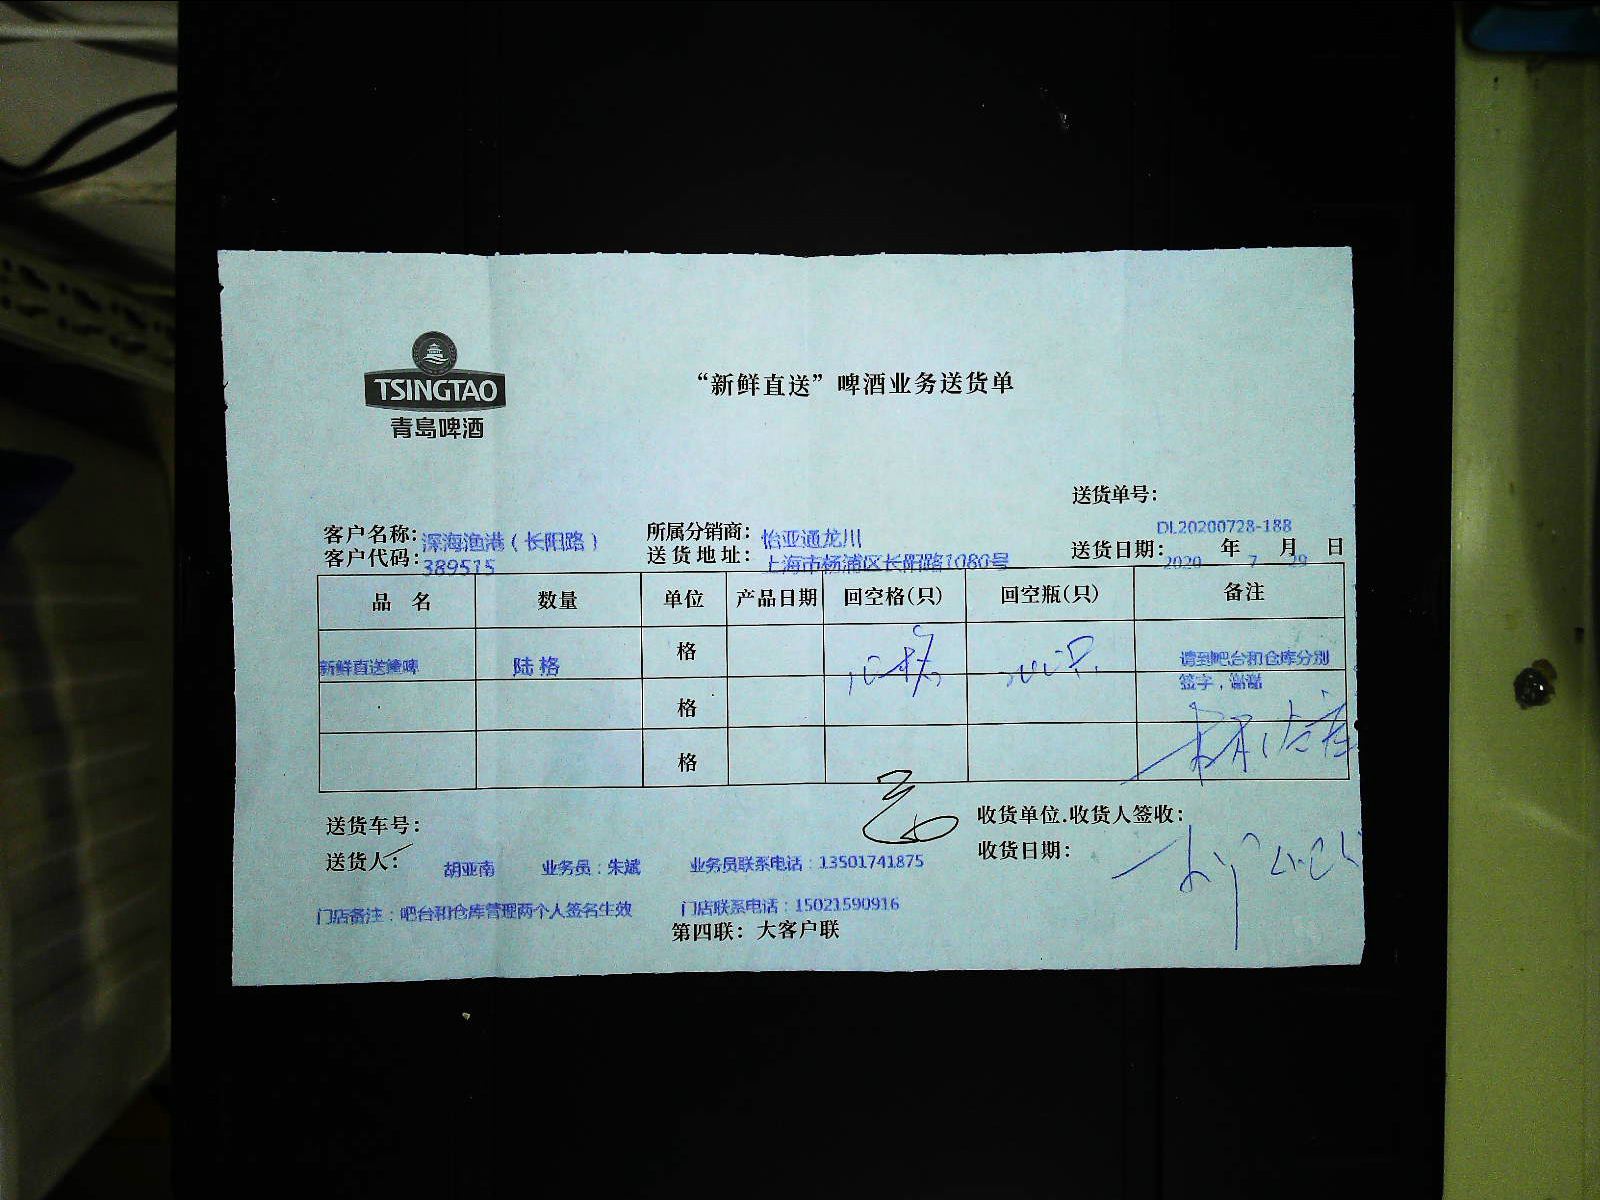 TSINGTAO
青島啤酒
“新鲜直送”啤酒业务送货单
送货单号：
DL20200728-188
客户名称：深海渔港（长阳路） 所属分销商：怡亚通龙川
客户代码：389515 送货地址：上海市杨浦区长阳路1080号 送货日期：2020年7月29日
品名 数量 单位 产品日期 回空格(只) 回空瓶(只) 备注
新鲜直送 陆格 格 请到吧台和仓库分别
签字，谢谢
格
格
送货车号： 收货单位.收货人签收：
送货人： 胡亚南 业务员：朱斌 业务员联系电话：13501741875 收货日期：
门店备注：吧台和仓库管理两个人签名生效 门店联系电话：15021590916
第四联：大客户联